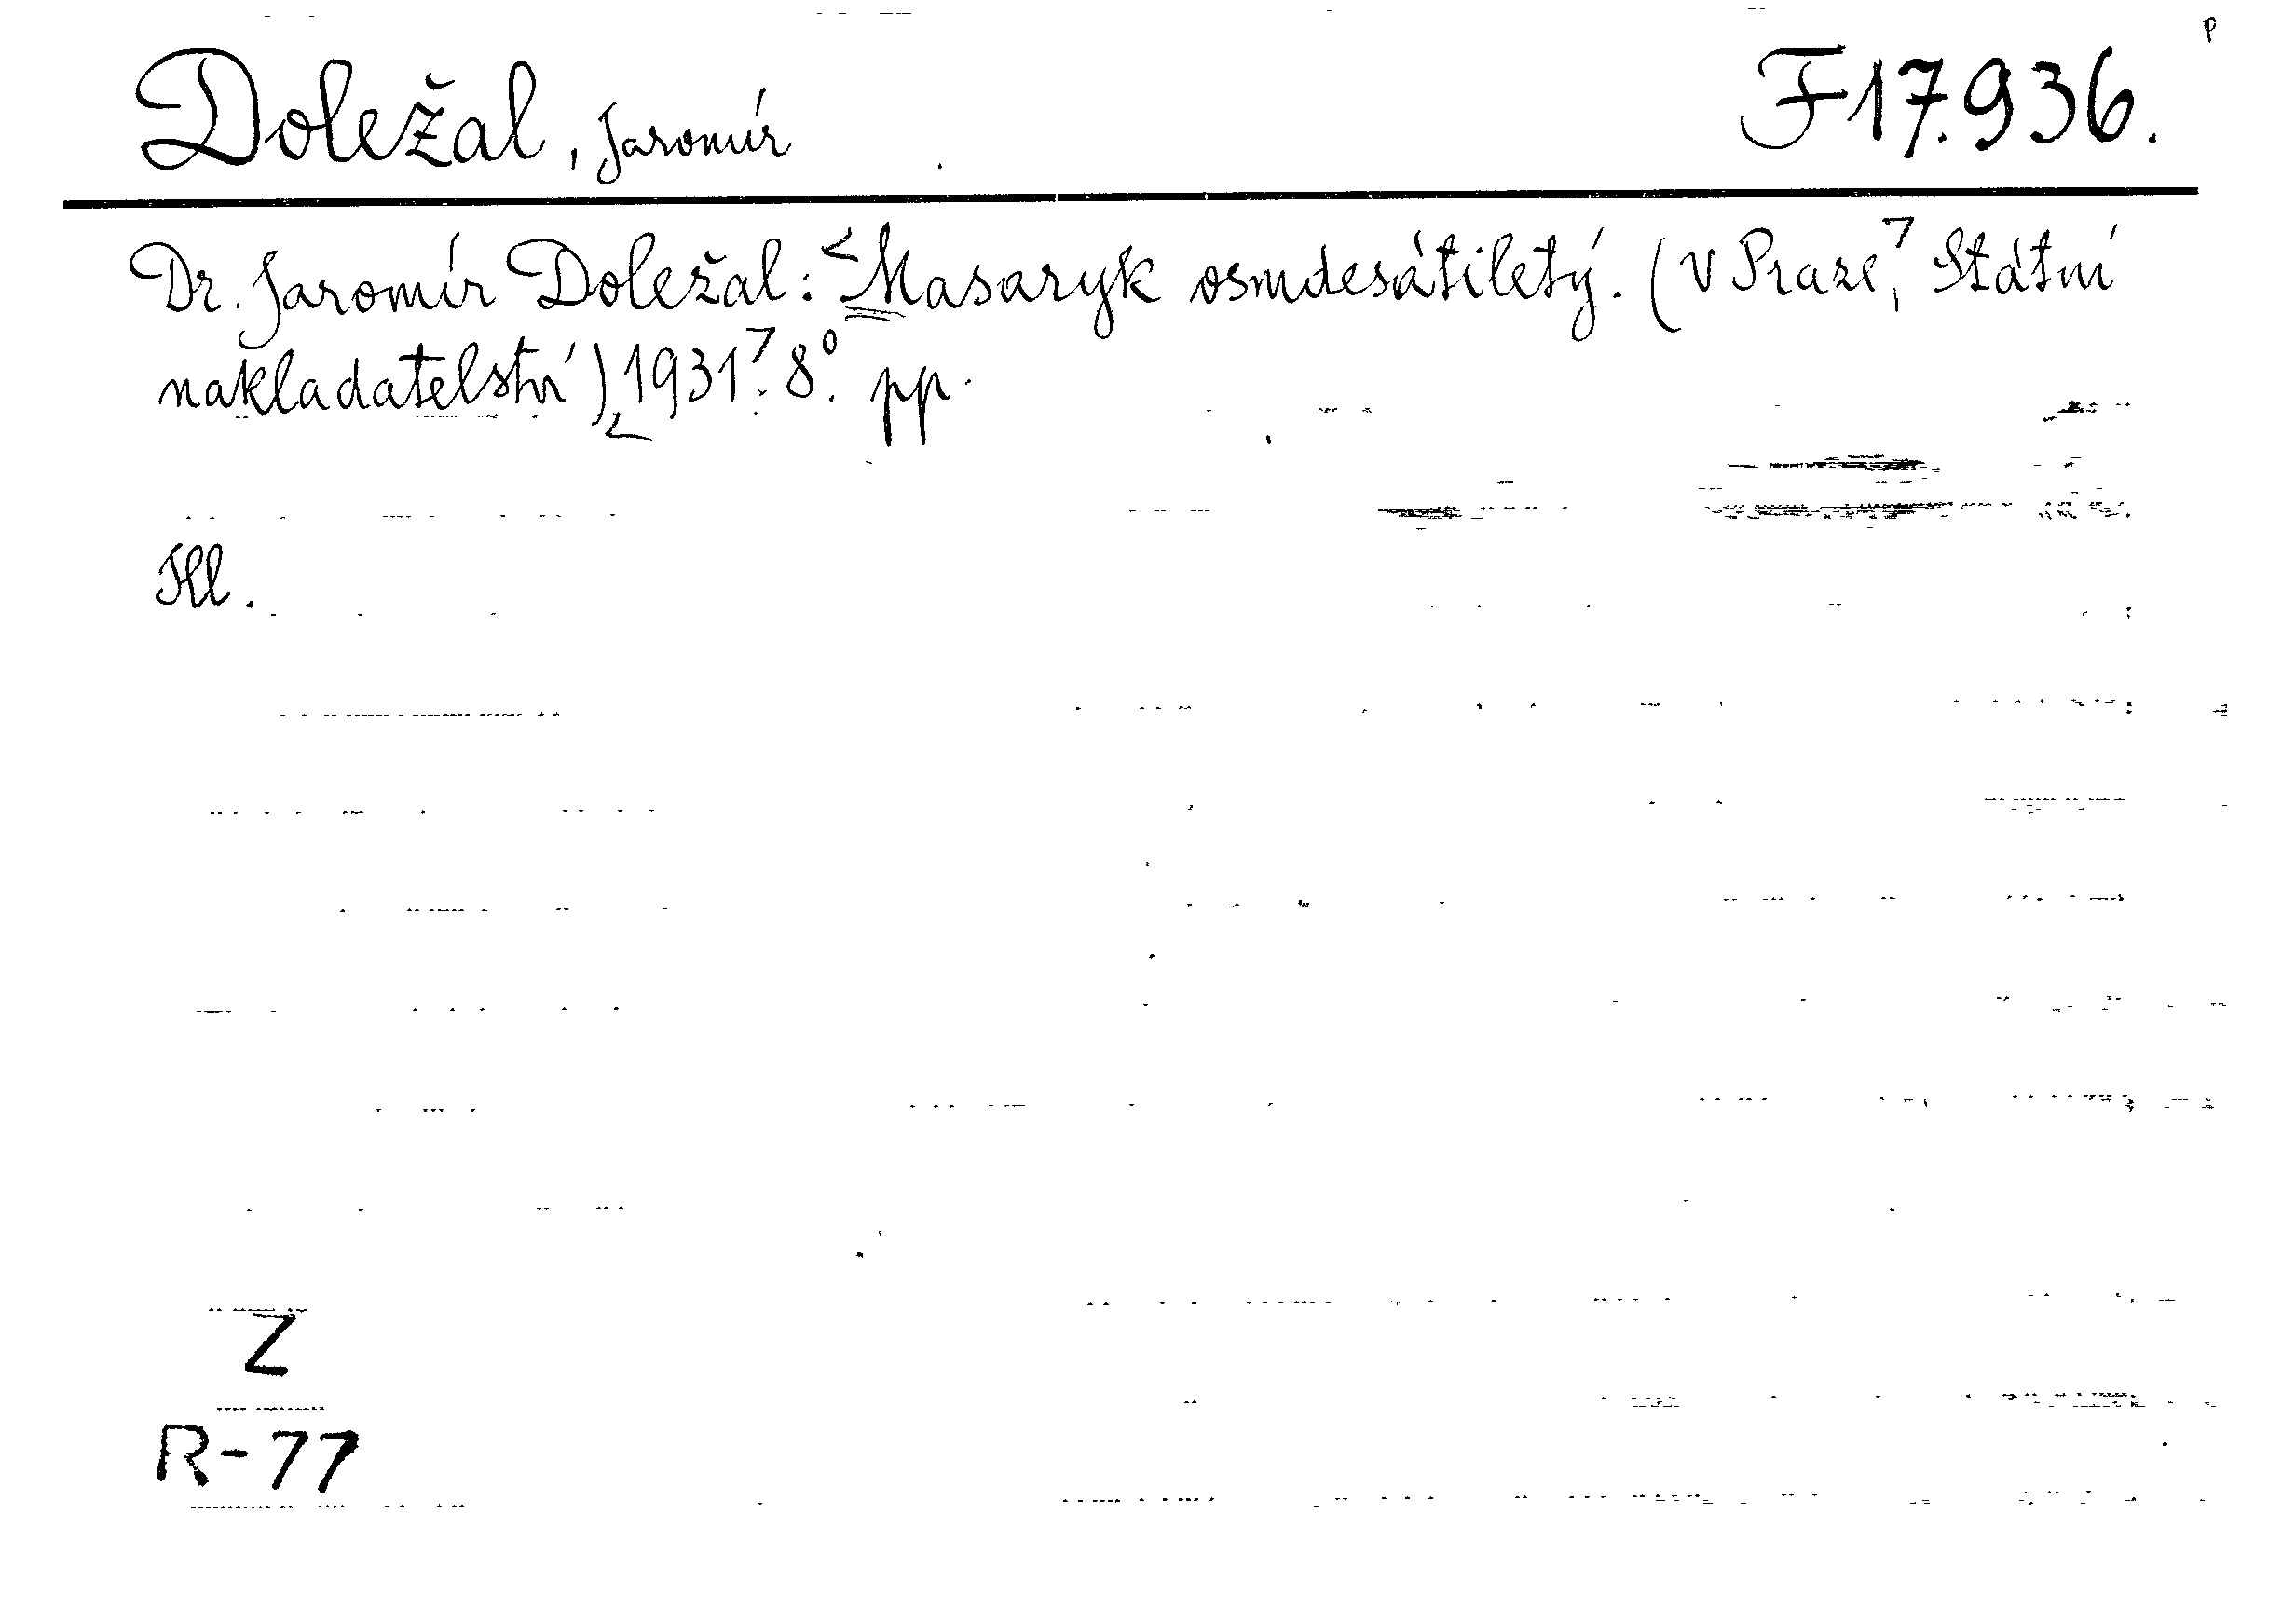 p
Doležal, Jaromír F 17.936.
Dr. Jaromír Doležal: <Masaryk osmdesátiletý. (V Praze, Státní
nakladatelství) 1931. 8°. pp.
Hl.
Z
R-77